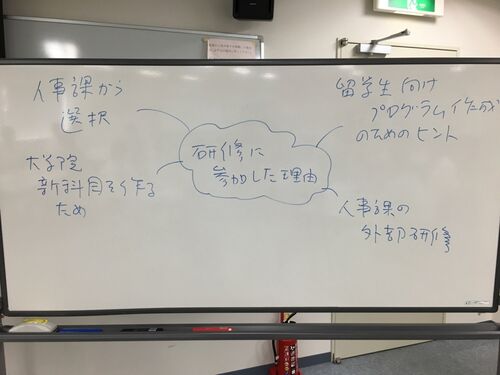 研修に
参加した理由
人事課から
選択
大学院
新科目を作る
ため
留学生向け
プログラム作成
のためのヒント
人事課の
外部研修